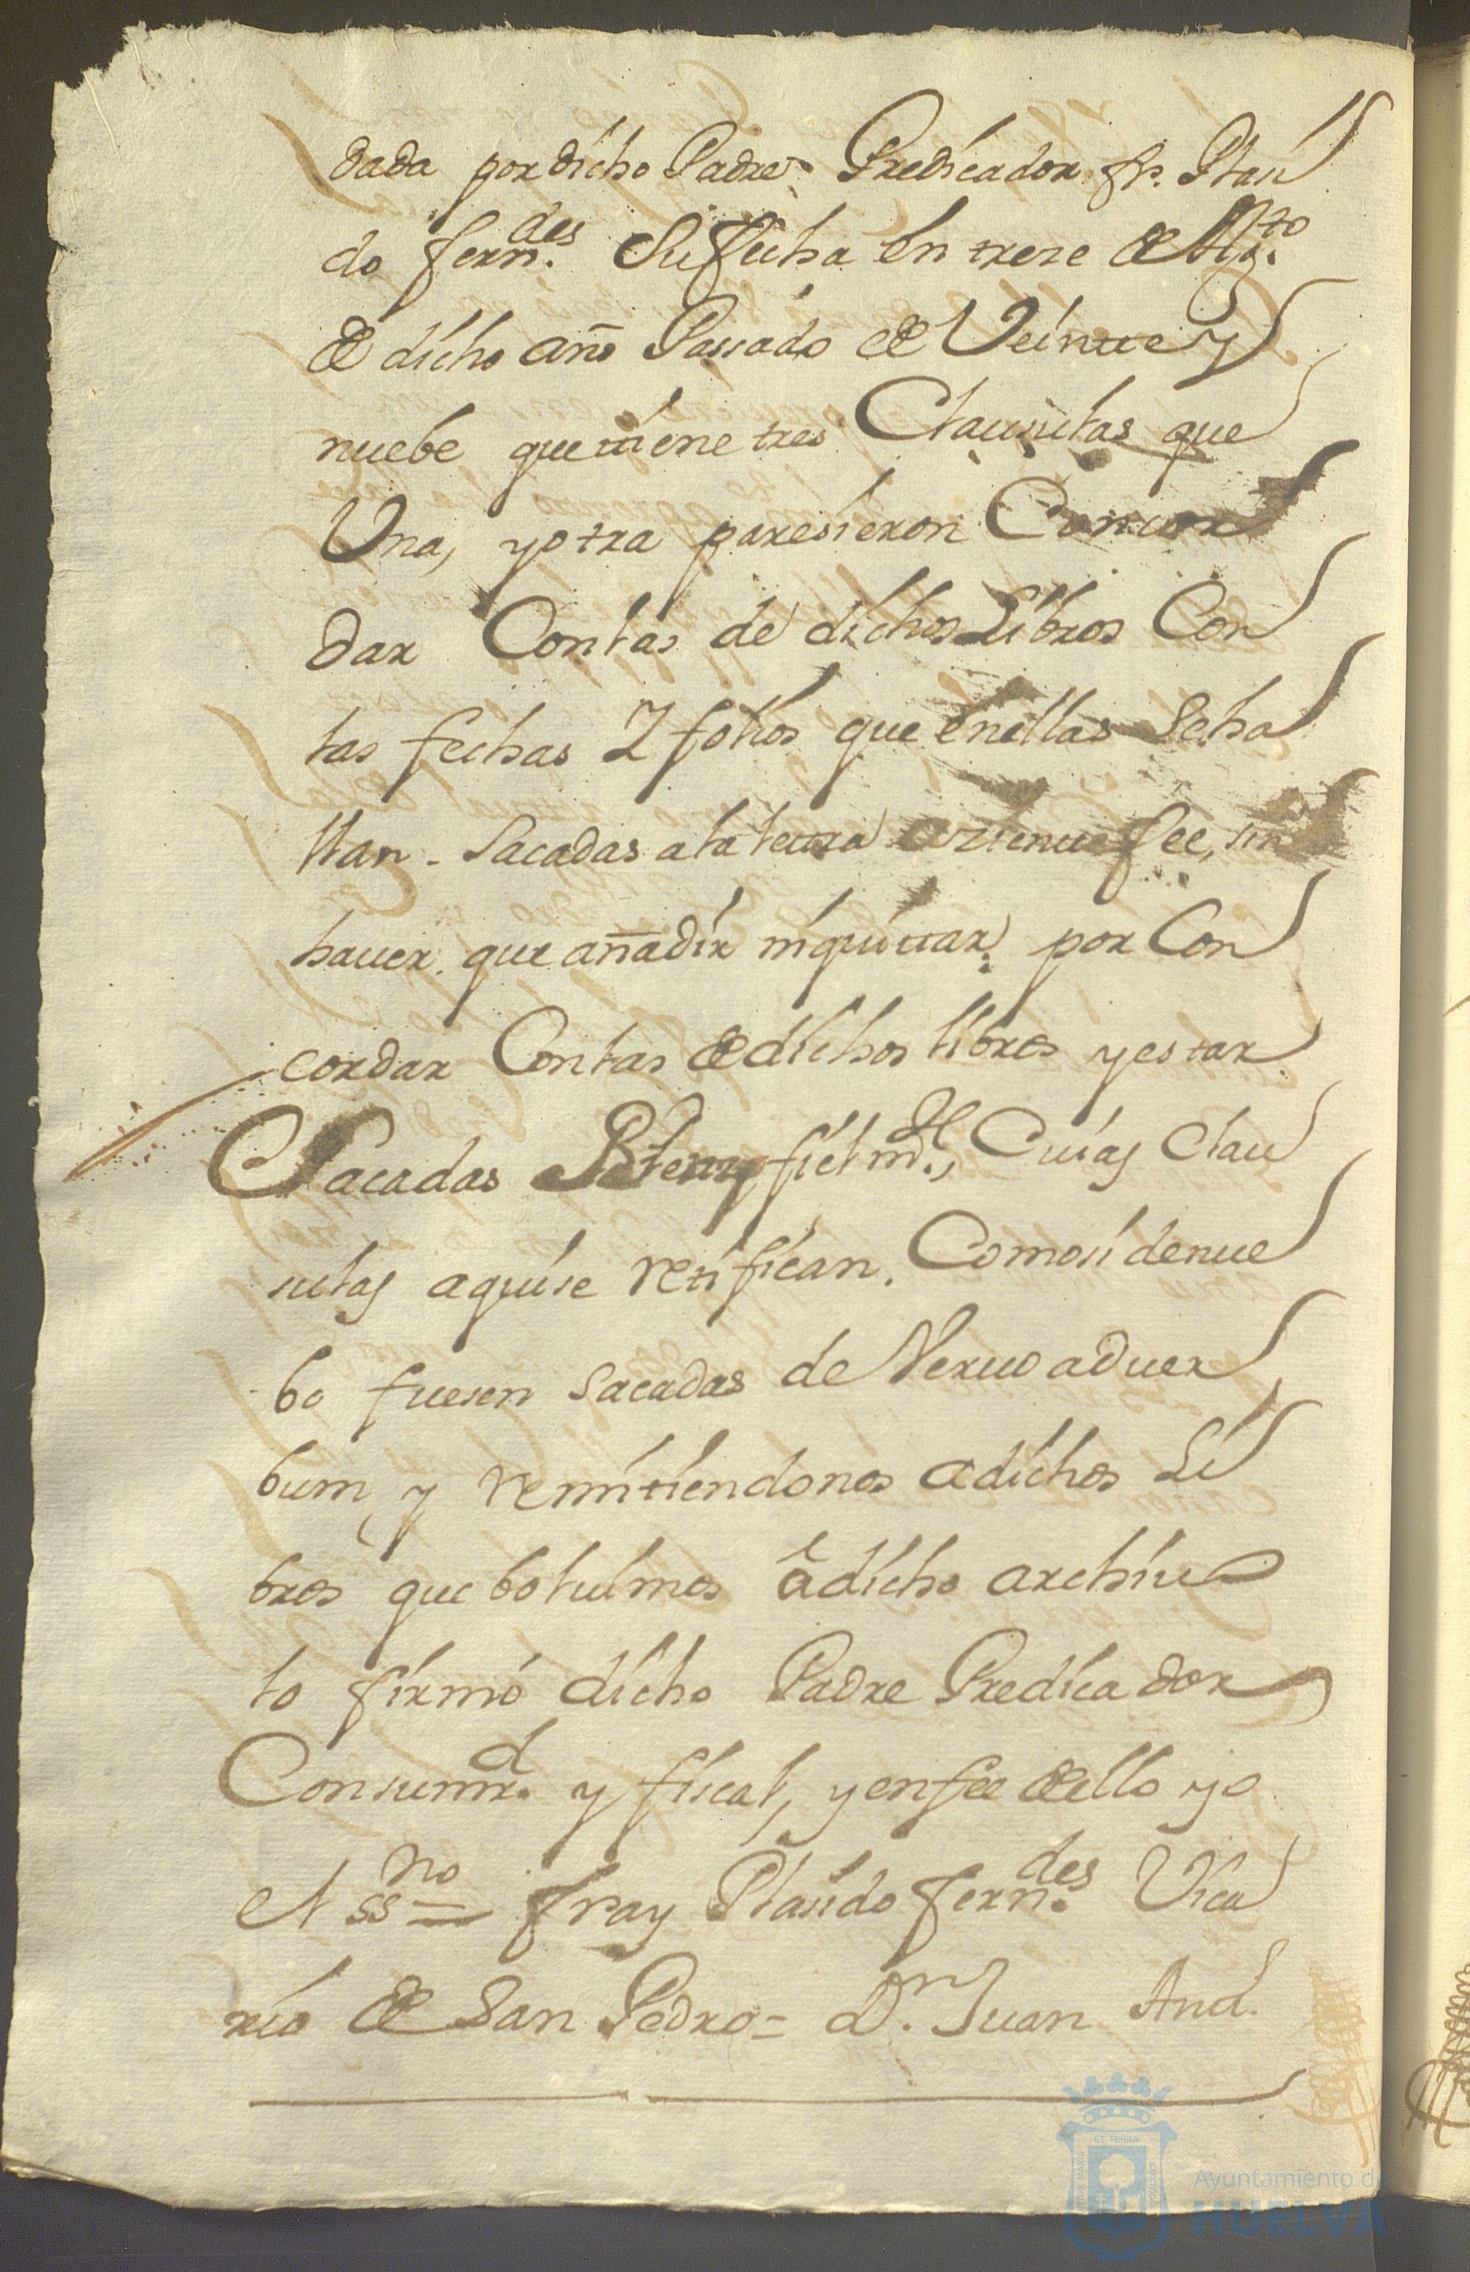 dada por dicho Padre Predicador fr. Plasi
do fern.des Su fecha en treze de Ag.to
de dicho año Passado de Veinte y
nuebe que tiene tres Clausulas que
Una, y otra paresieron Concor
dar Con las de dichos Libros Con
las fechas Y folios que en ellas se ha
llan. Sacadas a la letra fee, sin
hauer que añadir ni quittar por Con
cordar Con las de dichos libros y estar
Sacadas fielm.te, Cuias Clau
sulas aqui se retifican. Como si de nue
bo fuesen sacadas de Veruo ad uer
bum, y remitiendonos a dichos Li
bros que bolvimos â dicho archiuo
lo firmó dicho Padre Predicador
y fiscal, y en fee de ello yo
el ss.no = fray Plasido fern.des Vica
rio de San Pedro = D.n Juan And.
Ayuntamiento de
HUELVA